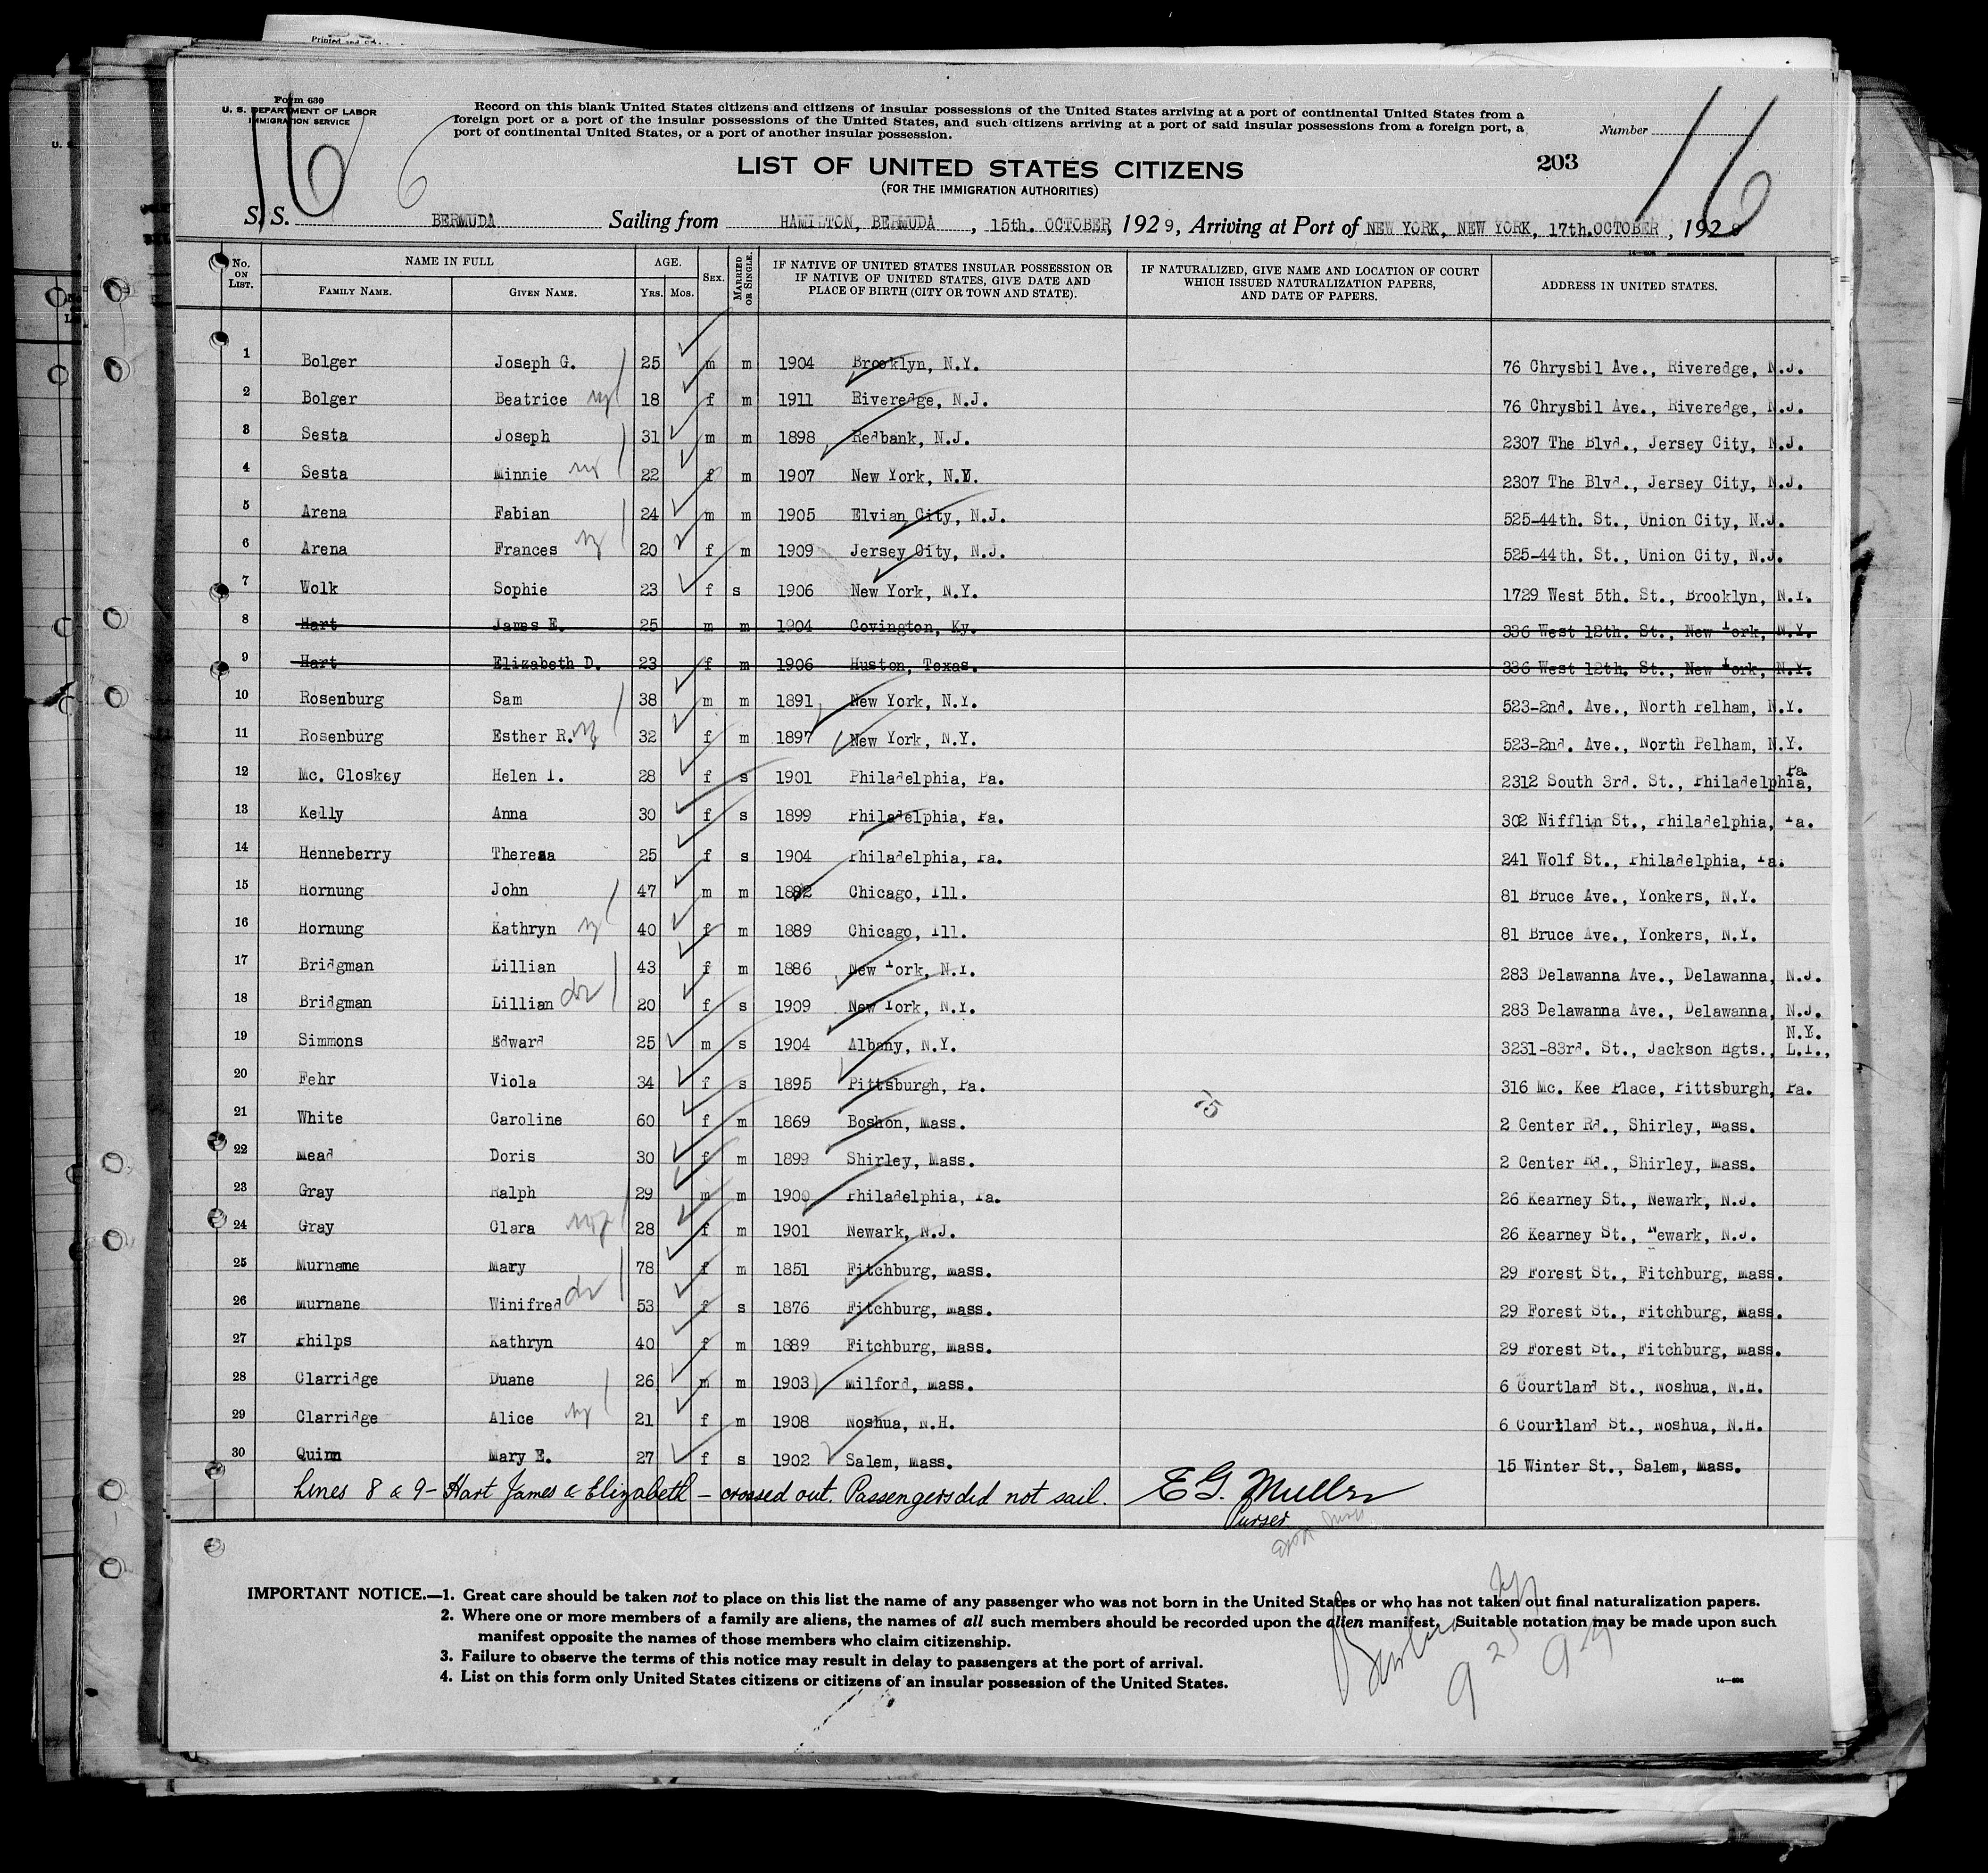 Form 630
U. S. DEPARTMENT OF LABOR
IMMIGRATION SERVICE
16
6
Record on this blank United States citizens and citizens of insular possessions of the United States arriving at a port of continental United States from a
foreign port or a port of the insular possessions of the United States, and such citizens arriving at a port of said insular possessions from a foreign port, a
port of continental United States, or a port of another insular possession.
Number
16
203
LIST OF UNITED STATES CITIZENS
(FOR THE IMMIGRATION AUTHORITIES)
S. S. BERMUDA Sailing from HAMILTON, BERMUDA, 15th. OCTOBER, 1929, Arriving at Port of NEW YORK, NEW YORK, 17th.OCTOBER, 1929
No. ON LIST. NAME IN FULL FAMILY NAME. GIVEN NAME. AGE. Yrs. Mos. SEX. MARRIED OR SINGLE. IF NATIVE OF UNITED STATES INSULAR POSSESSION OR IF NATIVE OF UNITED STATES, GIVE DATE AND PLACE OF BIRTH (CITY OR TOWN AND STATE). IF NATURALIZED, GIVE NAME AND LOCATION OF COURT WHICH ISSUED NATURALIZATION PAPERS, AND DATE OF PAPERS. ADDRESS IN UNITED STATES.
1 Bolger Joseph G. 25 m m 1904 Brooklyn, N.Y. 76 Chrysbil Ave., Riveredge, N.J.
2 Bolger Beatrice 18 f m 1911 Riveredge, N.J. 76 Chrysbil Ave., Riveredge, N.J.
3 Sesta Joseph 31 m m 1898 Redbank, N.J. 2307 The Blvd., Jersey City, N.J.
4 Sesta Minnie 22 f m 1907 New York, N.Y. 2307 The Blvd., Jersey City, N.J.
5 Arena Fabian 24 m m 1905 Elvian City, N.J. 525-44th. St., Union City, N.J.
6 Arena Frances 20 f m 1909 Jersey City, N.J. 525-44th. St., Union City, N.J.
7 Wolk Sophie 23 f s 1906 New York, N.Y. 1729 West 5th. St., Brooklyn, N.Y.
8 Hart James E. 25 m m 1904 Covington, Ky. 336 West 12th. St., New York, N.Y.
9 Hart Elizabeth D. 23 f m 1906 Huston, Texas. 336 West 12th. St., New York, N.Y.
10 Rosenburg Sam 38 m m 1891 New York, N.Y. 523-2nd. Ave., North Pelham, N.Y.
11 Rosenburg Esther R. 32 f m 1897 New York, N.Y. 523-2nd. Ave., North Pelham, N.Y.
12 Mc. Closkey Helen I. 28 f s 1901 Philadelphia, Pa. 2312 South 3rd. St., Philadelphia, Pa.
13 Kelly Anna 30 f s 1899 Philadelphia, Pa. 302 Nifflin St., Philadelphia, Pa.
14 Henneberry Theresa 25 f s 1904 Philadelphia, Pa. 241 Wolf St., Philadelphia, Pa.
15 Hornung John 47 m m 1882 Chicago, Ill. 81 Bruce Ave., Yonkers, N.Y.
16 Hornung Kathryn 40 f m 1889 Chicago, Ill. 81 Bruce Ave., Yonkers, N.Y.
17 Bridgman Lillian 43 f m 1886 New York, N.Y. 283 Delawanna Ave., Delawanna, N.J.
18 Bridgman Lillian 20 f s 1909 New York, N.Y. 283 Delawanna Ave., Delawanna, N.J.
19 Simmons Edward 25 m s 1904 Albany, N.Y. 3231-83rd. St., Jackson Hgts., L.I., N.Y.
20 Fehr Viola 34 f s 1895 Pittsburgh, Pa. 316 Mc. Kee Place, Pittsburgh, Pa.
21 White Caroline 60 f m 1869 Boshon, Mass. 75 2 Center Rd., Shirley, Mass.
22 Mead Doris 30 f m 1899 Shirley, Mass. 2 Center Rd., Shirley, Mass.
23 Gray Ralph 29 m m 1900 Philadelphia, Pa. 26 Kearney St., Newark, N.J.
24 Gray Clara 28 f m 1901 Newark, N.J. 26 Kearney St., Newark, N.J.
25 Murname Mary 78 f m 1851 Fitchburg, Mass. 29 Forest St., Fitchburg, Mass.
26 Murnane Winifred 53 f s 1876 Fitchburg, Mass. 29 Forest St., Fitchburg, Mass.
27 Philps Kathryn 40 f m 1889 Fitchburg, Mass. 29 Forest St., Fitchburg, Mass.
28 Clarridge Duane 26 m m 1903 Milford, Mass. 6 Courtland St., Noshua, N.H.
29 Clarridge Alice 21 f m 1908 Noshua, N.H. 6 Courtland St., Noshua, N.H.
30 Quinn Mary E. 27 f s 1902 Salem, Mass. 15 Winter St., Salem, Mass.
Lines 8 & 9 - Hart James & Elizabeth - crossed out. Passengers did not sail. E G. Muller
Purser
IMPORTANT NOTICE.—1. Great care should be taken not to place on this list the name of any passenger who was not born in the United States or who has not taken out final naturalization papers.
2. Where one or more members of a family are aliens, the names of all such members should be recorded upon the alien manifest. Suitable notation may be made upon such
manifest opposite the names of those members who claim citizenship.
3. Failure to observe the terms of this notice may result in delay to passengers at the port of arrival.
4. List on this form only United States citizens or citizens of an insular possession of the United States.